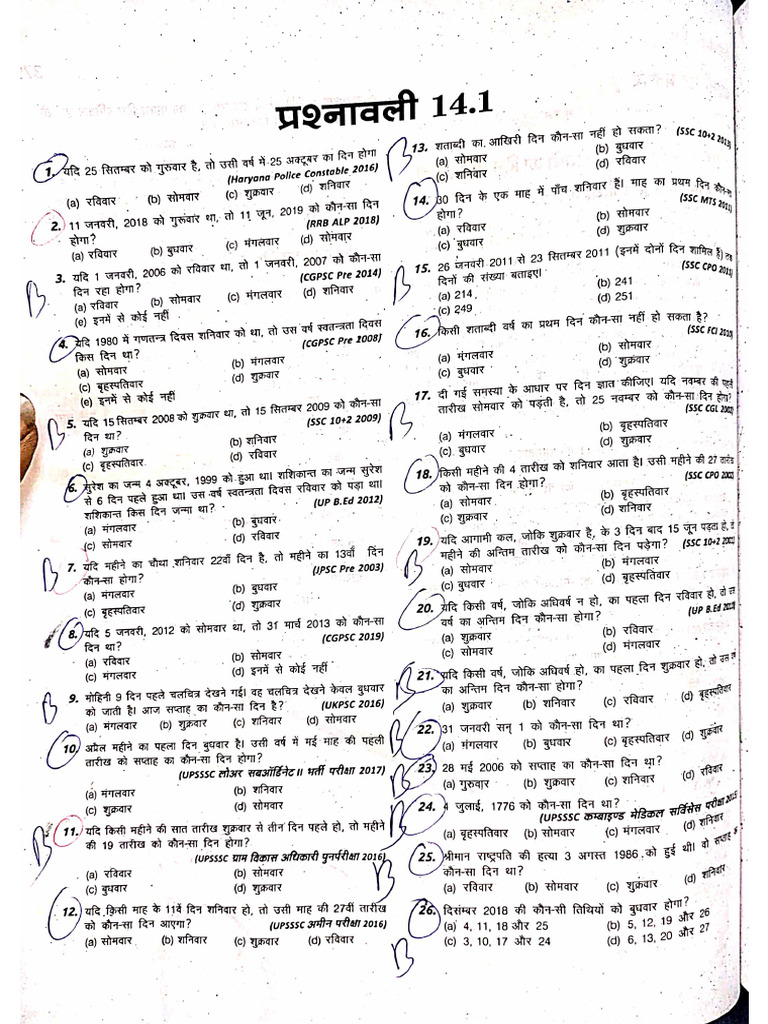 प्रश्नावली 14.1
1. यदि 25 सितम्बर को गुरुवार है, तो उसी वर्ष में 25 अक्टूबर का दिन होगा
(Haryana Police Constable 2016)
(a) रविवार (b) सोमवार (c) शुक्रवार (d) शनिवार
2. 11 जनवरी, 2018 को गुरूवार था, तो 11 जून, 2019 को कौन-सा दिन
होगा? (RRB ALP 2018)
(a) रविवार (b) बुधवार (c) मंगलवार (d) सोमवार
3. यदि 1 जनवरी, 2006 को रविवार था, तो 1 जनवरी, 2007 को कौन-सा
दिन रहा होगा? (CGPSC Pre 2014)
(a) रविवार (b) सोमवार (c) मंगलवार (d) शनिवार
(e) इनमें से कोई नहीं
4. यदि 1980 में गणतन्त्र दिवस शनिवार को था, तो उस वर्ष स्वतन्त्रता दिवस
किस दिन था? (CGPSC Pre 2008)
(a) सोमवार (b) मंगलवार
(c) बृहस्पतिवार (d) शुक्रवार
(e) इनमें से कोई नहीं
B
5. यदि 15 सितम्बर 2008 को शुक्रवार था, तो 15 सितम्बर 2009 को कौन-सा
दिन था? (SSC 10+2 2009)
(a) शुक्रवार (b) शनिवार
(c) बृहस्पतिवार (d) रविवार
6. सुरेश का जन्म 4 अक्टूबर, 1999 को हुआ था। शशिकान्त का जन्म सुरेश
से 6 दिन पहले हुआ था। उस वर्ष स्वतन्त्रता दिवस रविवार को पड़ा था।
शशिकान्त किस दिन जन्मा था? (UP B.Ed 2012)
(a) मंगलवार (b) बुधवार
(c) सोमवार (d) रविवार
B
7. यदि महीने का चौथा शनिवार 22वाँ दिन है, तो महीने का 13वाँ दिन
कौन-सा होगा? (JPSC Pre 2003)
(a) मंगलवार (b) बुधवार
(c) बृहस्पतिवार (d) शुक्रवार
8. यदि 5 जनवरी, 2012 को सोमवार था, तो 31 मार्च 2013 को कौन-सा
दिन था? (CGPSC 2019)
(a) रविवार (b) सोमवार
(c) मंगलवार (d) इनमें से कोई नहीं
B
9. मोहिनी 9 दिन पहले चलचित्र देखने गई। वह चलचित्र देखने केवल बुधवार
को जाती है। आज सप्ताह का कौन-सा दिन है? (UKPSC 2016)
(a) मंगलवार (b) शुक्रवार (c) शनिवार (d) सोमवार
10. अप्रैल महीने का पहला दिन बुधवार है। उसी वर्ष में मई माह की पहली
तारीख को सप्ताह का कौन-सा दिन होगा?
(UPSSSC लोअर सबऑर्डिनेट II भर्ती परीक्षा 2017)
(a) मंगलवार (b) शनिवार
(c) शुक्रवार (d) सोमवार
B
11. यदि किसी महीने की सात तारीख शुक्रवार से तीन दिन पहले हो, तो महीने
की 19 तारीख को कौन-सा दिन होगा?
(UPSSSC ग्राम विकास अधिकारी पुनर्परीक्षा 2016)
(a) रविवार (b) सोमवार
(c) बुधवार (d) शुक्रवार
12. यदि किसी माह के 11वें दिन शनिवार हो, तो उसी माह की 27वीं तारीख
को कौन-सा दिन आएगा? (UPSSSC अमीन परीक्षा 2016)
(a) सोमवार (b) शनिवार (c) शुक्रवार (d) रविवार
B
13. शताब्दी का आखिरी दिन कौन-सा नहीं हो सकता? (SSC 10+2 2013)
(a) सोमवार (b) बुधवार
(c) शनिवार (d) रविवार
14. 30 दिन के एक माह में पाँच शनिवार हैं। माह का प्रथम दिन कौन-सा
होगा? (SSC MTS 2011)
(a) रविवार (b) सोमवार
(c) बुधवार (d) शुक्रवार
B
15. 26 जनवरी 2011 से 23 सितम्बर 2011 (इनमें दोनों दिन शामिल हैं) तक
दिनों की संख्या बताइए। (SSC CPO 2011)
(a) 214 (b) 241
(c) 249 (d) 251
16. किसी शताब्दी वर्ष का प्रथम दिन कौन-सा नहीं हो सकता है?
(SSC FCI 2010)
(a) मंगलवार (b) सोमवार
(c) बुधवार (d) शुक्रवार
B
17. दी गई समस्या के आधार पर दिन ज्ञात कीजिए। यदि नवम्बर की पहली
तारीख सोमवार को पड़ती है, तो 25 नवम्बर को कौन-सा दिन होगा?
(SSC CGL 2002)
(a) मंगलवार (b) बृहस्पतिवार
(c) बुधवार (d) शुक्रवार
18. किसी महीने की 4 तारीख को शनिवार आता है। उसी महीने की 27 तारीख
को कौन-सा दिन होगा? (SSC CPO 2002)
(a) सोमवार (b) बृहस्पतिवार
(c) शुक्रवार (d) शनिवार
B
19. यदि आगामी कल, जोकि शुक्रवार है, के 3 दिन बाद 15 जून पड़ता हो, तो
महीने की अन्तिम तारीख को कौन-सा दिन पड़ेगा?
(a) सोमवार (b) मंगलवार
(c) बुधवार (d) बृहस्पतिवार
20. यदि किसी वर्ष, जोकि अधिवर्ष न हो, का पहला दिन रविवार हो, तो उस
वर्ष का अन्तिम दिन कौन-सा होगा?
(a) शुक्रवार (b) रविवार
(c) सोमवार (d) मंगलवार
B
21. यदि किसी वर्ष, जोकि अधिवर्ष हो, का पहला दिन शुक्रवार हो, तो उस वर्ष
का अन्तिम दिन कौन-सा होगा?
(a) शुक्रवार (b) शनिवार (c) रविवार (d) बृहस्पतिवार
B
22. 31 जनवरी सन् 1 को कौन-सा दिन था?
(a) मंगलवार (b) बुधवार (c) बृहस्पतिवार (d) शुक्रवार
B
23. 28 मई 2006 को सप्ताह का कौन-सा दिन था?
(a) गुरुवार (b) शुक्रवार (c) शनिवार (d) रविवार
B
24. 4 जुलाई, 1776 को कौन-सा दिन था?
(UPSSSC कम्बाइण्ड मेडिकल सर्विसेस परीक्षा 2015)
(a) बृहस्पतिवार (b) सोमवार (c) मंगलवार (d) शनिवार
B
25. श्रीमान राष्ट्रपति की हत्या 3 अगस्त 1986 को हुई थी। वो सप्ताह का
कौन-सा दिन था?
(a) रविवार (b) सोमवार (c) शुक्रवार (d) शनिवार
26. दिसंम्बर 2018 की कौन-सी तिथियों को बुधवार होगा?
(a) 4, 11, 18 और 25 (b) 5, 12, 19 और 26
(c) 3, 10, 17 और 24 (d) 6, 13, 20 और 27
B